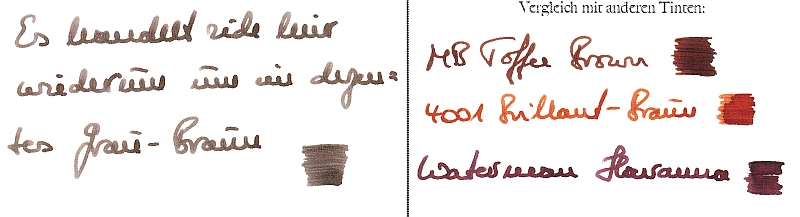 Es handelt sich hier
wiederum um ein dezen=
tes Grau-Braun
Vergleich mit anderen Tinten:
MB Toffee Brown
4001 Brillant-Braun
Waterman Havanna